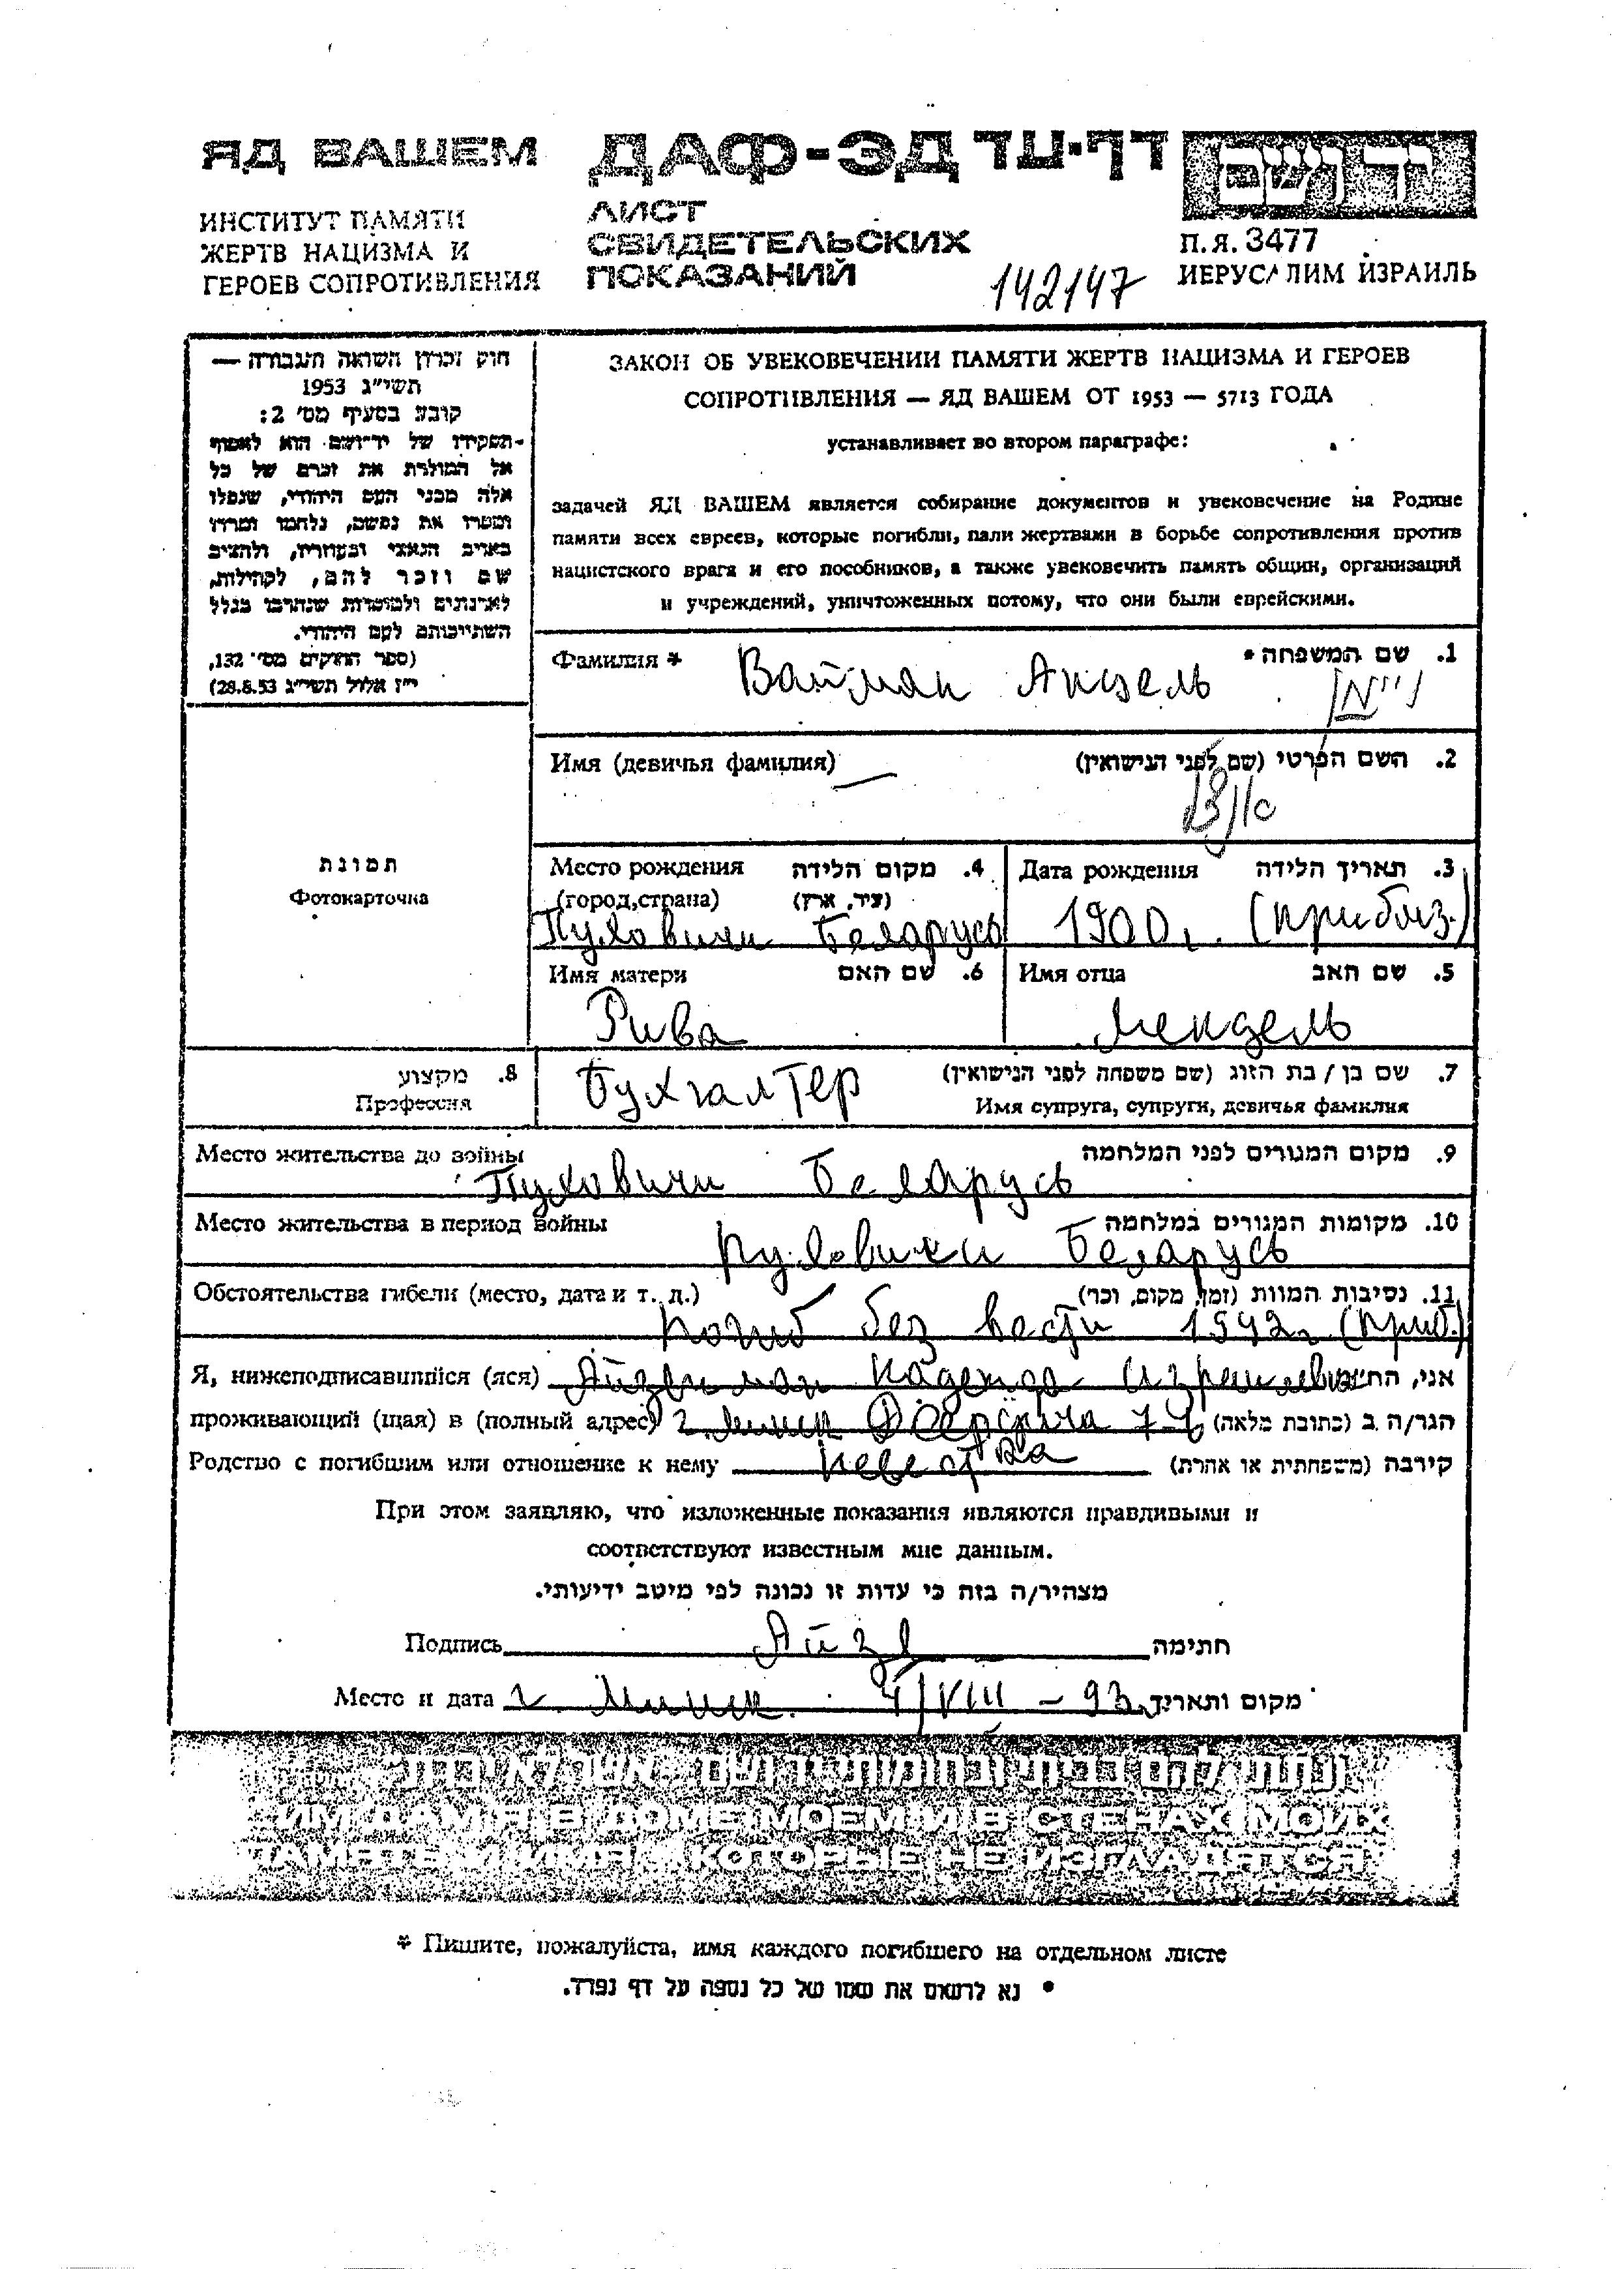 ЯД ВАШЕМ
ИНСТИТУТ ПАМЯТИ
ЖЕРТВ НАЦИЗМА И
ГЕРОЕВ СОПРОТИВЛЕНИЯ
ДАФ-ЭД דף-עד
ЛИСТ
СВИДЕТЕЛЬСКИХ
ПОКАЗАНИЙ
142147
יד ושם
П.Я. 3477
ИЕРУСАЛИМ ИЗРАИЛЬ
חוק זכרון השואה והגבורה —
תשי״ג 1953
קובע בסעיף מס׳ 2:
תפקידו של יד-ושם הוא לאסוף
אל המולדת את זכרם של כל
אלה מבני העם היהודי, שנפלו
ומסרו את נפשם, נלחמו ומרדו
באויב הנאצי ובעוזריו, ולהציב
שם וזכר להם, לקהילות,
לארגונים ולמוסדות שנחרבו בגלל
השתייכותם לעם היהודי.
(ספר החוקים מס׳ 132,
י״ז אלול תשי״ג 28.8.53)
ЗАКОН ОБ УВЕКОВЕЧЕНИИ ПАМЯТИ ЖЕРТВ НАЦИЗМА И ГЕРОЕВ
СОПРОТИВЛЕНИЯ — ЯД ВАШЕМ ОТ 1953 — 5713 ГОДА
устанавливает во втором параграфе:
задачей ЯД ВАШЕМ является собирание документов и увековечение на Родине
памяти всех евреев, которые погибли, пали жертвами в борьбе сопротивления против
нацистского врага и его пособников, а также увековечить память общин, организаций
и учреждений, уничтоженных потому, что они были еврейскими.
Фамилия * Вайман Анцель 1. שם המשפחה *
Имя (девичья фамилия) — 2. השם הפרטי (שם לפני הנישואין)
תמונת
Фотокарточка
Место рождения 4. מקום הלידה
(город,страна) (עיר, ארץ)
Пуховичи Беларусь
Дата рождения 3. תאריך הלידה
1900г. (приблиз.)
Имя матери 6. שם האם
Рива
Имя отца 5. שם האב
Мендель
8. מקצוע
Профессия
Бухгалтер
7. שם בן / בת הזוג (שם משפחה לפני הנישואין)
Имя супруга, супруги, девичья фамилия
Место жительства до войны 9. מקום המגורים לפני המלחמה
Пуховичи Беларусь
Место жительства в период войны 10. מקומות המגורים במלחמה
Пуховичи Беларусь
Обстоятельства гибели (место, дата и т. д.) 11. נסיבות המוות (זמן, מקום, וכו׳)
погиб без вести 1942г. (приб.)
Я, нижеподписавшийся (яся) Айзенман Надежда Израилевна אני, הח״מ
проживающий (щая) в (полный адрес) г. Минск הגר/ה ב (כתובת מלאה)
Родство с погибшим или отношение к нему невестка קירבה (משפחתית או אחרת)
При этом заявляю, что изложенные показания являются правдивыми и
соответствуют известным мне данным.
מצהיר/ה בזה כי עדות זו נכונה לפי מיטב ידיעותי.
Подпись Айз חתימה
Место и дата г. Минск. 4/VIII - 93г. מקום ותאריך
ונתתי להם בביתי ובחומותי יד ושם ... אשר לא יכרת
ИМ ДАМ Я В ДОМЕ МОЕМ И В СТЕНАХ МОИХ
ПАМЯТЬ И ИМЯ, КОТОРЫЕ НЕ ИЗГЛАДЯТСЯ
* Пишите, пожалуйста, имя каждого погибшего на отдельном листе
* נא לרשום את שמו של כל נספה על דף נפרד.